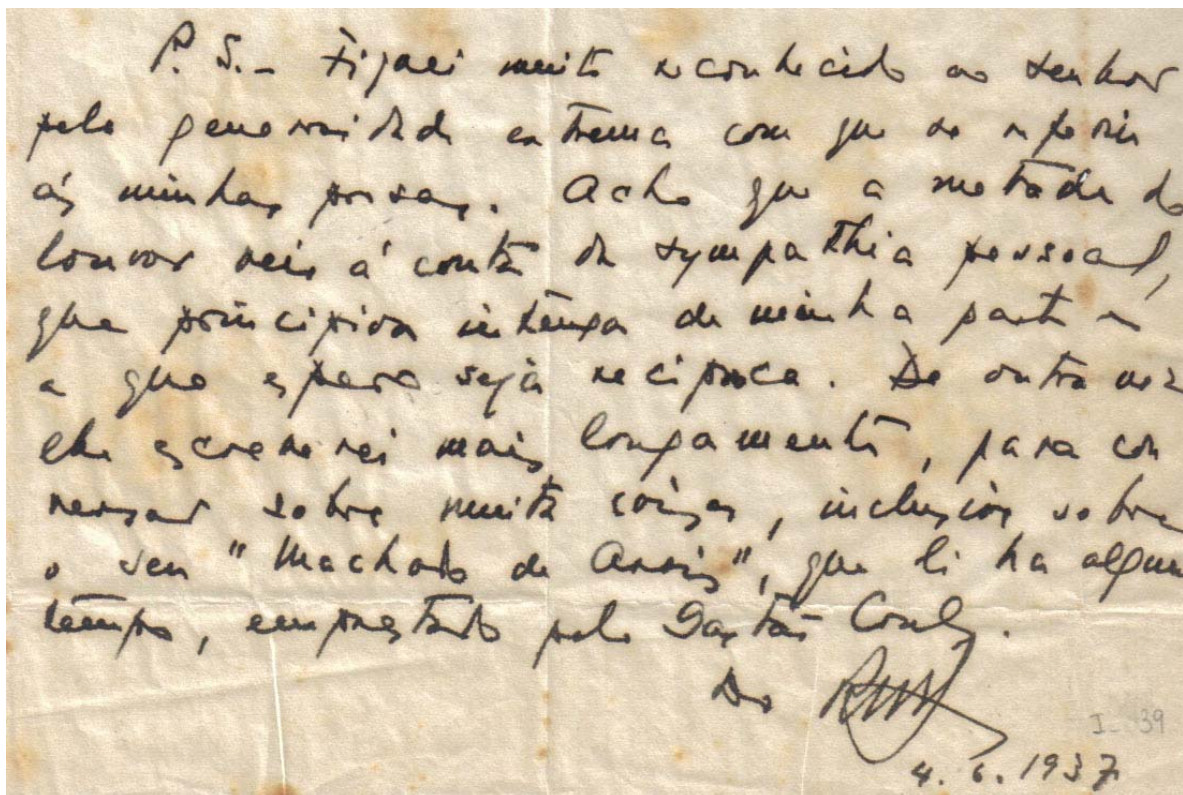 P. S. – Fiquei muito reconhecido ao senhor
pela generosidade extrema com que se referiu
ás minhas prosas. Acho que a metade do
louvor veio á conta da sympathia pessoal,
que principiou intensa de minha parte e
a que espero seja reciproca. De outra vez
lhe escreverei mais longamente, para con
versar sobre muita coisa, inclusive sobre
o seu "Machado de Assis", que li ha algum
tempo, emprestado pelo Gastão Cruls.
Do
I- 39
4. 6. 1937